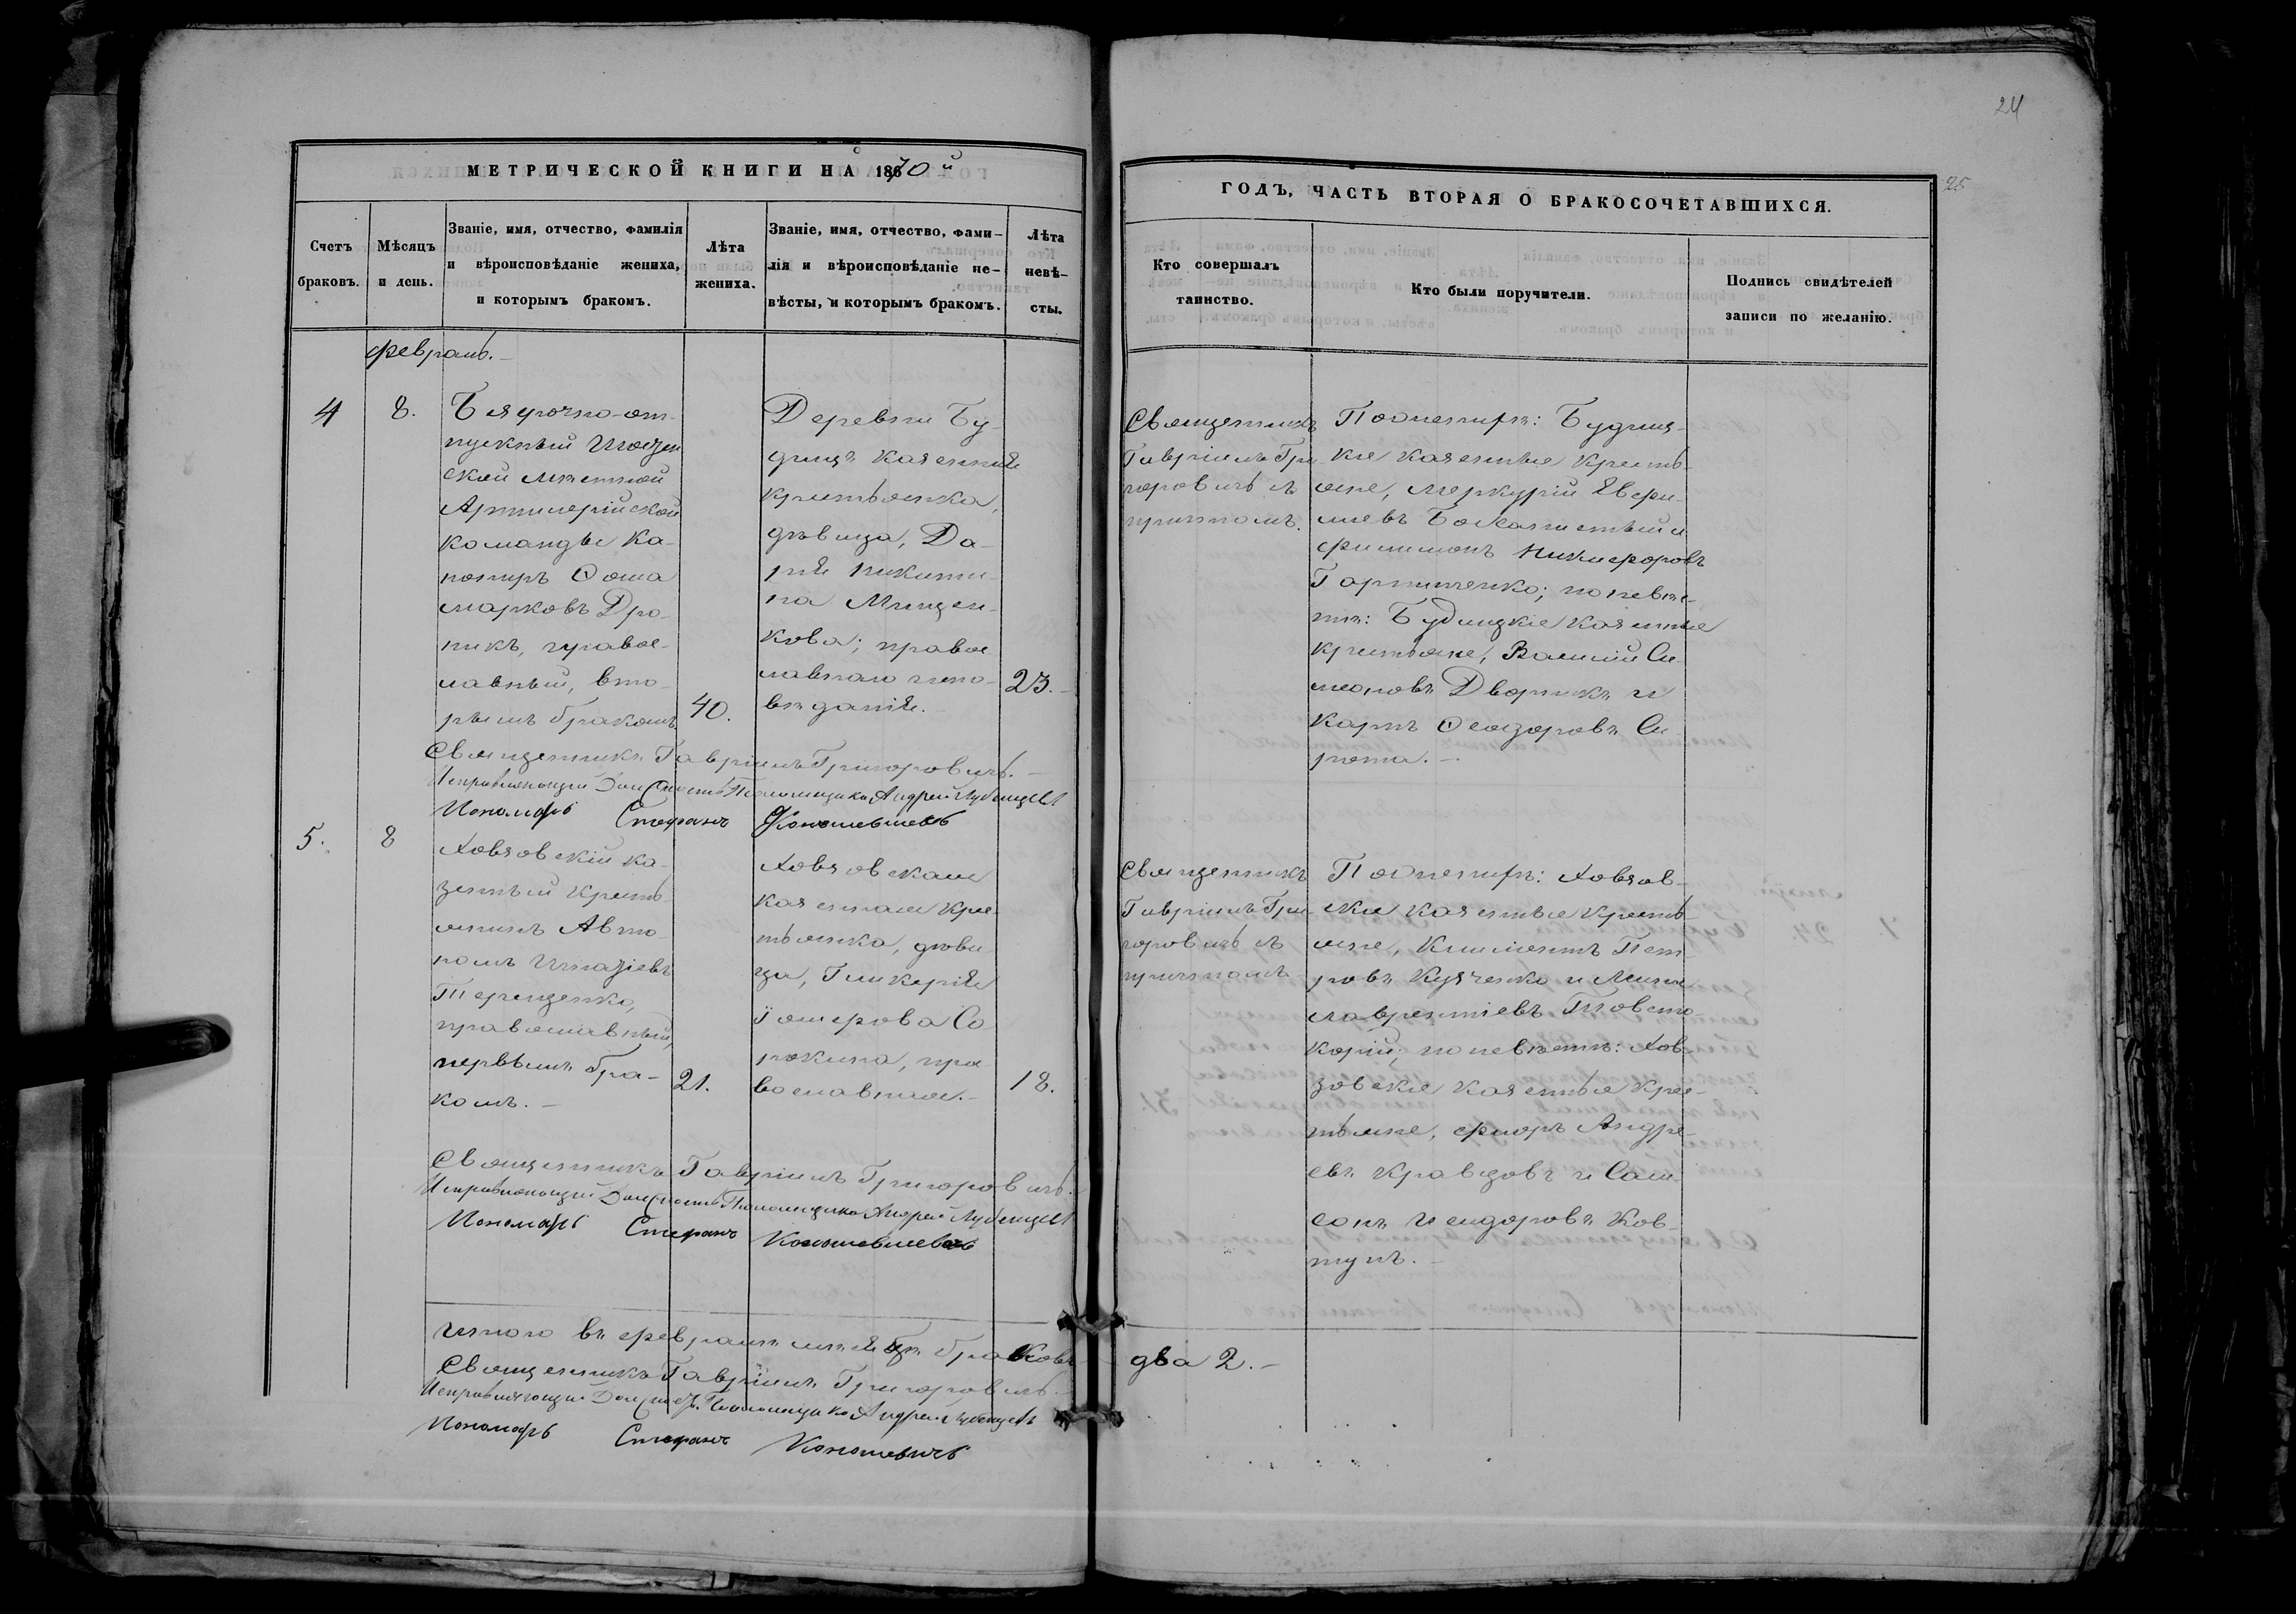 24
25
МЕТРИЧЕСКОЙ КНИГИ НА 1870й
ГОДЪ, ЧАСТЬ ВТОРАЯ О БРАКОСОЧЕТАВШИХСЯ.
Счетъ
браковъ.
Мѣсяцъ
и день.
Званіе, имя, отчество, фамилія
и вѣроисповѣданіе жениха,
и которымъ бракомъ.
Лѣта
жениха.
Званіе, имя, отчество, фами-
лія и вѣроисповѣданіе не-
вѣсты, и которымъ бракомъ.
Лѣта
невѣ-
сты.
Кто совершалъ
таинство.
Кто были поручители.
Подпись свидѣтелей
записи по желанію.
февраль.
4
8.
Безсрочно-от-
пускный
ской мѣстной
Артилерійской
команды Ка-
ониръ Ѳома
Марковъ Дро-
никъ, правос-
лавный, вто-
рымъ бракомъ
40.
Деревни Бу-
дищъ казенная
крестьянка,
дѣвица, Да-
рія Никити-
на Мищен-
кова; правос
лавнаго испо-
вѣданія.
23.
Священникъ
Гавріилъ Гри-
горовичъ съ
причтомъ.
По женихѣ: Будищ-
кіе казенные кресть-
яне, Меркурій Евфи-
міевъ и
Филимонъ Никифоровъ
по невѣс-
тѣ: Будищкіе казенные
крестьяне, Василій Си-
меоновъ Дворникъ и
Карпъ Ѳеодоровъ Си-
рота.
Священникъ Гавріилъ Григоровичъ.
Исправляющій Должность Псаломщика Андрей Лубенцевъ
Пономарь Стефанъ Кононевичевъ
5.
8
Ховзовскій ка-
зенный кресть-
янинъ Авто-
номъ Игнатіевъ
Терещенко,
православный,
первымъ бра-
комъ.
21.
Ховзовская
казенная крес-
тьянка, дѣви-
ца, Гликерія
Іосифова Со
рокина, пра-
вославная.
18.
Священникъ
Гавріилъ Гри-
горовичъ съ
причтомъ
По женихѣ: Ховзов-
скіе казенные кресть-
яне, Климентъ Пет-
ровъ и
Лаврентіевъ Товсто-
корій; по невѣстѣ: Хов-
зовскіе казенные крес-
тьяне, Флоръ Андре-
евъ Кравцовъ и Сам-
сонъ Исидоровъ Ков-
тунъ.
Священникъ Гавріилъ Григоровичъ.
Исправляющій Должность Псаломщика Андрей Лубенцевъ
Пономарь Стефанъ Кононевичевъ
Итого въ февралѣ мѣсяцѣ браковъ два 2.
Священникъ Гавріилъ Григоровичъ.
Исправляющій Должность Псаломщика Андрей Лубенцевъ
Пономарь Стефанъ Кононевичъ